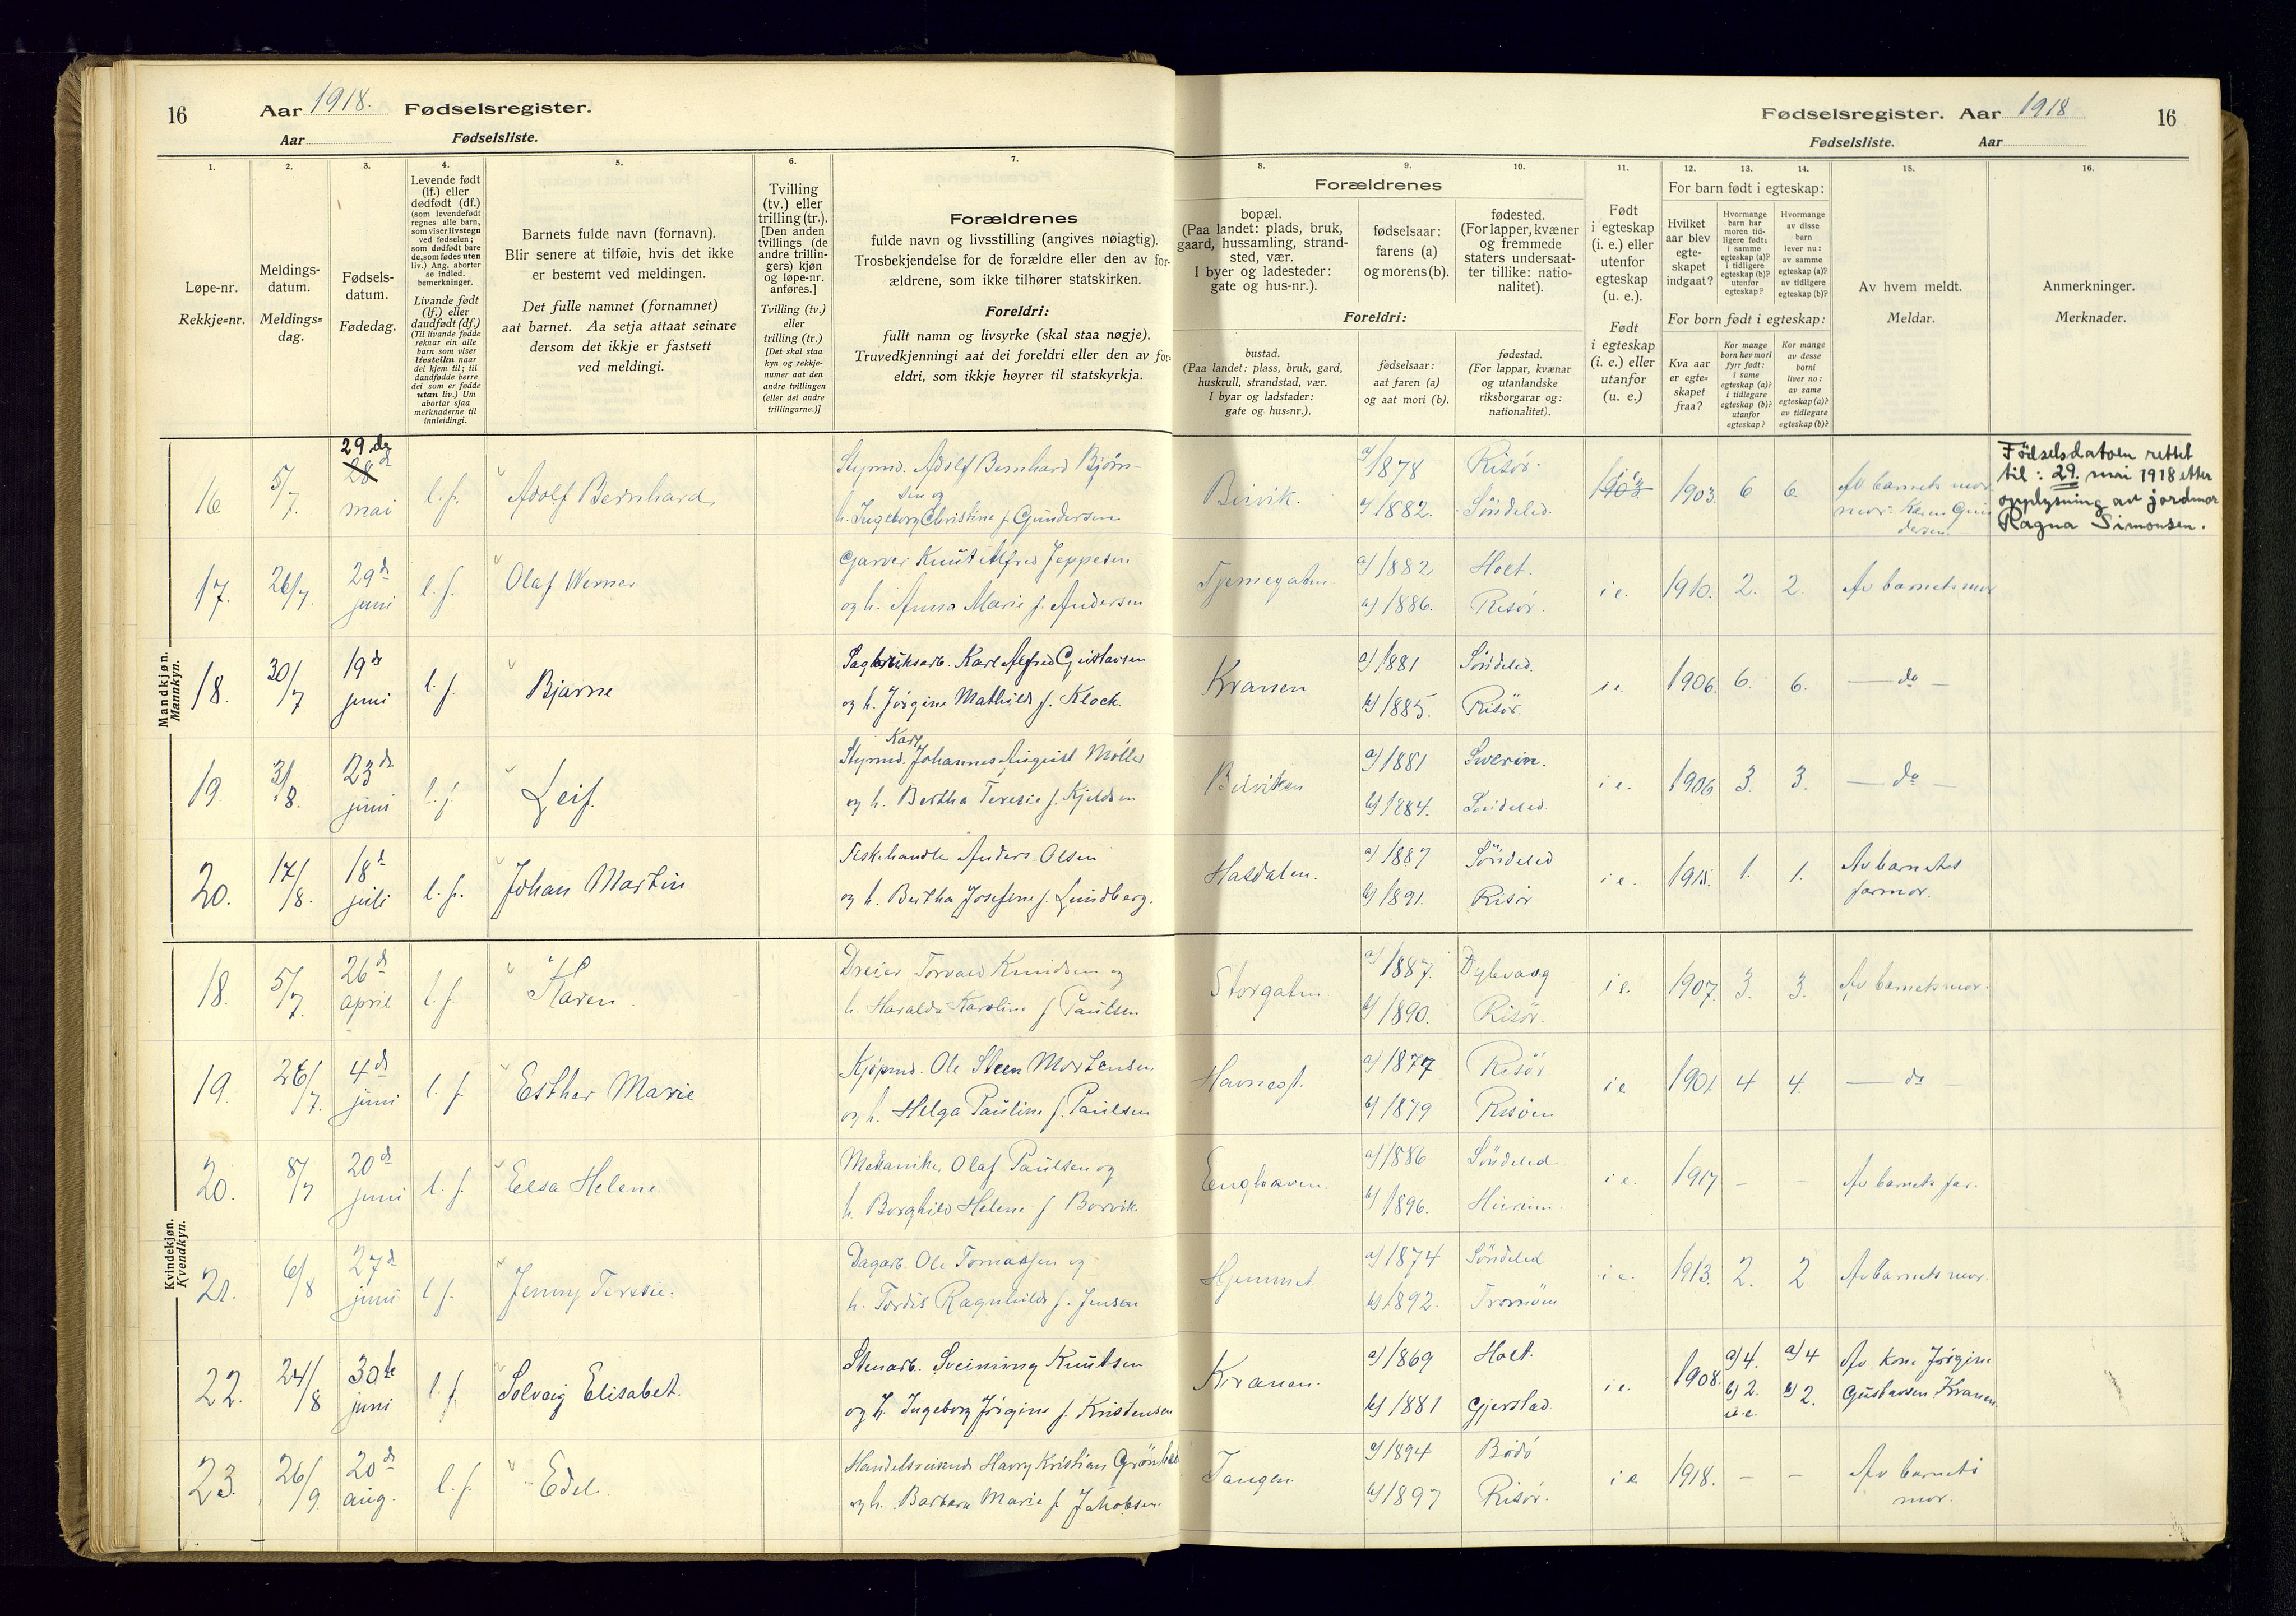 16 Aar 1918. Fødselsregister.
Aar Fødselsliste.
Fødselsregister. Aar 1918 16
Fødselsliste. Aar
1. 2. 3. 4. 5. 6. 7.
8. 9. 10. 11. 12. 13. 14. 15. 16.
Løpe-nr.
Rekkje=nr.
Meldings-
datum.
Meldings=
dag.
Fødsels-
datum.
Fødedag.
Levende født
(lf.) eller
dødfødt (df.)
(som levendefødt
regnes alle barn,
som viser livstegn
ved fødselen;
som dødfødt bare
de, som fødes uten
liv.) Ang. aborter
se indled.
bemerkninger.
Livande født
(lf.) eller
daudfødt (df.)
(Til livande fødde
reknar ein alle
barn som viser
livsteikn naar
dei kjem til; til
daudfødde berre
dei som er fødde
utan liv.) Um
abortar sjaa
merknaderne til
innleidingi.
Barnets fulde navn (fornavn).
Blir senere at tilføie, hvis det ikke
er bestemt ved meldingen.
Det fulle namnet (fornamnet)
aat barnet. Aa setja attaat seinare
dersom det ikkje er fastsett
ved meldingi.
Tvilling
(tv.) eller
trilling (tr.).
[Den anden
tvillings (de
andre trillin-
gers) kjøn
og løpe-nr.
anføres.]
Tvilling (tv.)
eller
trilling (tr.)
[Det skal staa
kyn og rekkje-
numer aat den
andre tvillingen
(eller dei andre
trillingarne.)]
Forældrenes
fulde navn og livsstilling (angives nøiagtig).
Trosbekjendelse for de forældre eller den av for-
ældrene, som ikke tilhører statskirken.
Foreldri:
fullt namn og livsyrke (skal staa nøgje).
Truvedkjenningi aat dei foreldri eller den av for=
eldri, som ikkje høyrer til statskyrkja.
Forældrenes
bopæl.
(Paa landet: plads, bruk,
gaard, hussamling, strand-
sted, vær.
I byer og ladesteder:
gate og hus-nr.).
fødselsaar:
farens (a)
og morens (b).
fødested.
(For lapper, kvæner
og fremmede
staters undersaat-
ter tillike: natio-
nalitet).
Foreldri:
bustad.
(Paa landet: plass, bruk, gard,
huskrull, strandstad, vær.
I byar og ladstader:
gate og hus=nr.).
fødselsaar:
aat faren (a)
og aat mori (b).
fødestad.
(For lappar, kvænar
og utanlandske
riksborgarar og:
nationalitet).
Født
i egteskap
(i. e.) eller
utenfor
egteskap
(u. e.).
Født
i egteskap
(i. e.) eller
utanfor
(u. e.)
For barn født i egteskap:
Hvilket
aar blev
egte-
skapet
indgaat?
Hvormange
barn har
moren tid-
ligere født:
i samme
egteskap (a)?
i tidligere
egteskap (b)?
utenfor
egteskap?
Hvormange
av disse
barn
lever nu:
av samme
egteskap (a)?
av tidligere
egteskap (b)?
For born født i egteskap:
Kva aar
er egte=
skapet
fraa?
Kor mange
born hev mori
fyrr født:
i same
egteskap (a)?
i tidlegare
egteskap (b)?
utanfor
egteskap?
Kor mange
av desse
borni
liver no:
av same
egteskap (a)?
av tidlegare
egteskap (b)?
Av hvem meldt.
Meldar.
Anmerkninger.
Merknader.
Mandkjøn.
Mannkyn.
29.de
16 5/7. 28de mai l.f. Adolf Bernhard Styrmd. Adolf Bernhard Bjørn-
sen og
h. Ingeborg Christine f. Gundersen
Buvik. a) 1878 Risør.
b) 1882. Søndeled.
i.e. 1903. 6 6. Av barnets mor
mor Karen Gun
dersen.
Fødselsdatoen rettet
til: 29. mai 1918 etter
opplysning av jordmor
Ragna Simonsen.
17. 26/7. 29de juni l.f. Olaf Werner Garver Knut Alfred Jeppesen
og h. Anna Marie f. Andersen
Tjennegaten a) 1882 Holt.
b) 1886. Risør.
i e. 1910. 2. 2. Av barnets mor
18. 30/7 19de juni l.f. Bjarne Sagbruksarb. Karl Alfred Gustavsen
og h. Jørgine Mathilde f. Klock.
Kranen a) 1881 Søndeled.
b) 1885. Risør.
i e. 1906. 6. 6. — do —
19. 3/8. 23de juni l.f. Leif. Styrmd. Karl Johannes August Møller
og h. Bertha Teresie f. Kjeldsen
Buviken a) 1881 Swerin.
b) 1884. Søndeled
i e. 1906 3. 3. — do —
20. 17/8. 18de juli l.f. Johan Martin Fiskehandler Anders Olsen
og h. Bertha Josefine f. Lundberg.
Hasdalen. a) 1887 Søndeled
b) 1891. Risør
i e. 1915. 1. 1. Av barnets
farmor.
Kvindekjøn.
Kvendkyn.
18. 5/7. 26de april l.f. Karen. Dreier Torvald Knudsen og
h. Haralda Karoline f. Paulsen
Storgaten. a) 1887. Dybvaag
b) 1890. Risør.
i e. 1907. 3. 3. Av barnets mor.
19. 26/7. 4de juni l.f. Esther Marie Kjøpmd. Ole Steen Mortensen
og h. Helga Pauline f. Paulsen
Havnegt. a) 1877 Risør
b) 1879 Risøen
i e 1901. 4 4. — do —
20. 8/7 20de juni l.f. Elsa Helene. Mekaniker Olaf Paulsen og
h. Borghild Helene f Borvik.
Enghaven. a) 1886 Søndeled
b) 1896.
i e. 1917 – – Av barnets far.
21. 6/8 27de juni l f. Jenny Teresie. Dagarb. Ole Tomassen og
h. Tordis Ragnhilde f. Jensen
Hjemmet a) 1874 Søndeled
b) 1892. Tromøen
i e. 1913. 2. 2 Av barnets mor.
22. 24/8 30te juni l.f. Solveig Elisabet. Stenarb. Sveinung Knutsen
og h. Ingeborg Jørgine f. Kristensen
Kranen. a) 1869 Holt.
b) 1881 Gjerstad.
i e. 1908. a) 4. b) 2. u.e. a) 4 b) 2. Av Kone Jørgine
Gustavsen Kranen.
23. 26/9. 20de aug. l.f. Edel. Handelsreisende Harry Kristian
og h. Barbara Marie f. Jakobsen.
Tangen. a) 1894 Bodø
b) 1897 Risør.
i e 1918. – – Av barnets
mor.